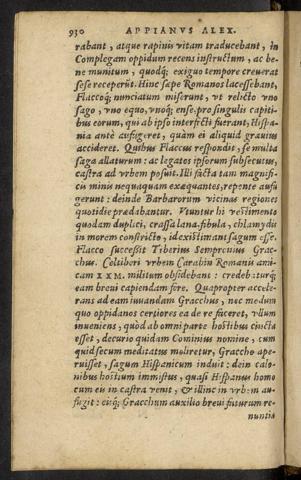 930 APPIANVS ALEX.
rabant, atque rapinis vitam traducebant, in
Complegam oppidum recens instructum, ac be-
ne munitum, quodq; exiguo tempore creuerat
sese receperũt. Hinc sæpe Romanos lacessebant,
Flaccoq; nunciatum miserunt, vt relicto vno
sago, vno equo, vnoq; ense, pro singulis capiti-
bus eorum, qui ab ipso interfecti fuerant, Hispa-
nia antè aufugeret, quàm ei aliquid grauius
accideret. Quibus Flaccus respondit, se multa
saga allaturum: ac legatos ipsorum subsecutus,
castra ad vrbem posuit. Illi facta tam magnifi-
cis minis nequaquam exæquantes, repente aufu
gerunt: deinde Barbarorum vicinas regiones
quotidie prædabantur. Vtuntur hi vestimento
quodam duplici, crassa lana, fibula, chlamydis
in morem constricto, id existimans sagum esse.
Flacco successit Tiberius Sempronius Grac-
chus. Celtiberi vrbem Carabin Romanis ami-
cam XXM. militum obsidebant: credebaturq;
eam breui capiendam fore. Quapropter accele-
rans ad eam iuuandam Gracchus, nec medum
quo oppidanos certiores ea de re faceret, vllum
inueniens, quòd ab omni parte hostibus cincta
esset, decurio quidam Cominius nomine, cum
quid secum meditatus moliretur, Graccho ape-
ruisset, sagum Hispanicum induit: dein calo-
nibus hostium immistus, quasi Hispanus homo
cum eis in castra venit, & illinc in vrbem au-
fugit: eisq; Gracchum auxilio breui futurum re-
nuntia